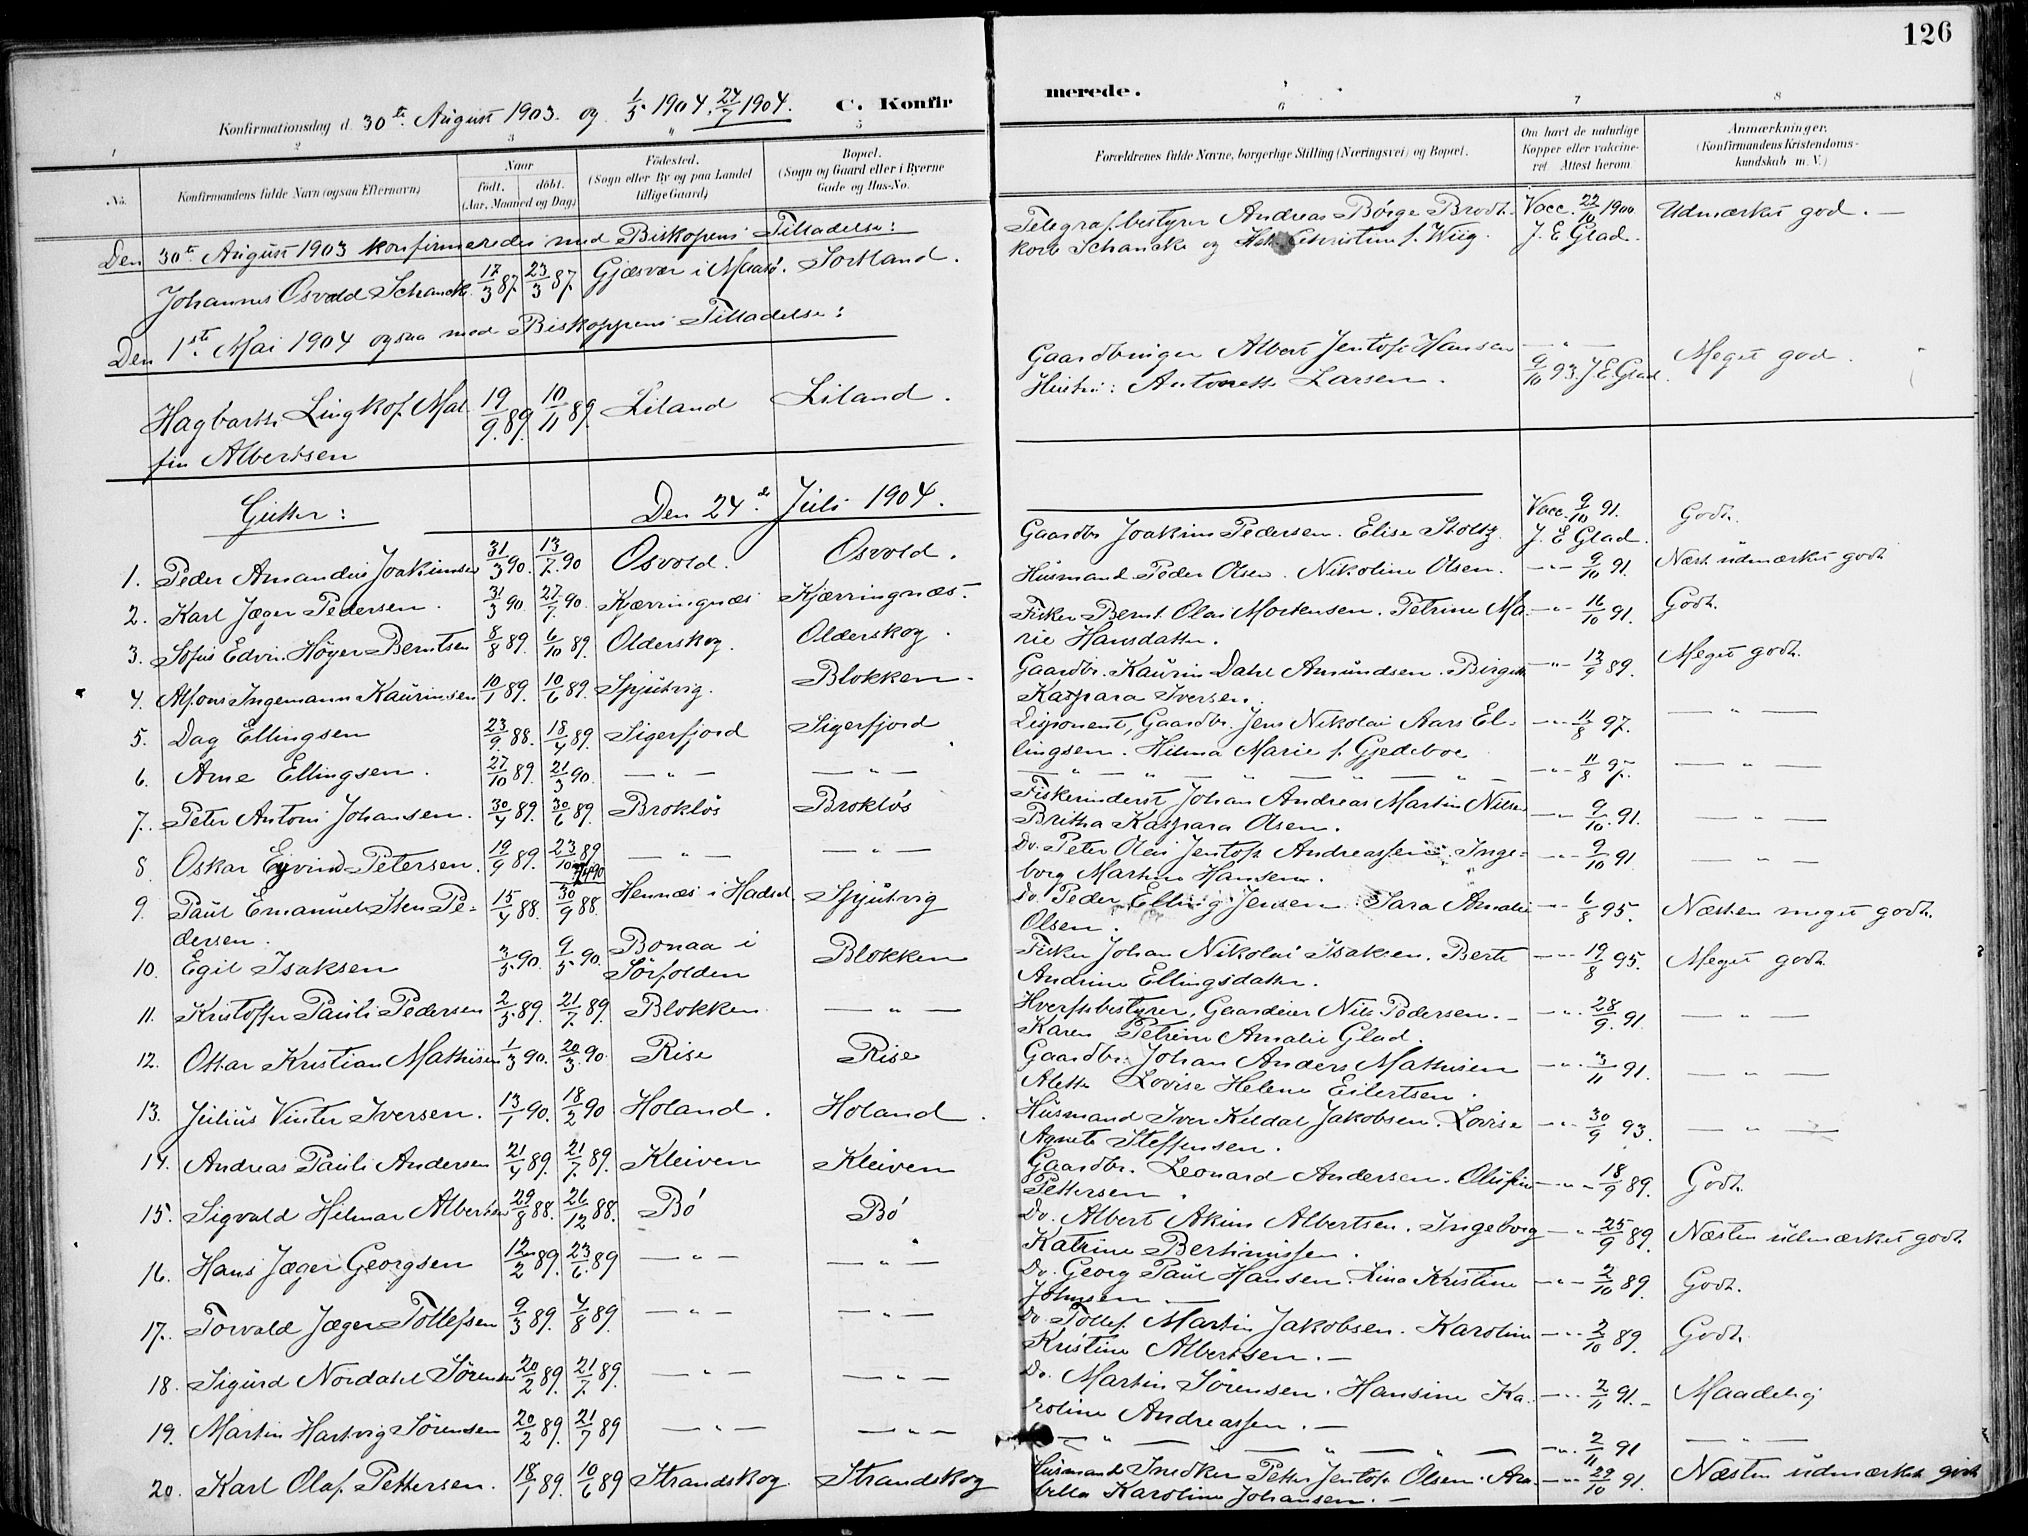 126
Konfirmationsdag d. 30te August 1903 og 1/5 1904. 24/7 1904. C. Konfirmerede.
1 2 3 " 5 6 7 8
No.
Konfirmandens fulde Navn (ogsaa Efternavn)
Naar
født. døbt.
(Aar, Maaned og Dag)
Fødested.
(Sogn eller By og paa Landet
tillige Gaard)
Bopæl.
(Sogn og Gaard eller i Byerne
Gade og Hus-No.
Forældrenes fulde Navne, borgerlige Stilling (Næringsvei) og Bopæl.
Om havt de naturlige
Kopper eller vakcine-
ret Attest herom
Anmærkninger.
(Konfirmandens Kristendoms-
kundskab m. V.)
Den 30te August 1903 konfirmeredes med Biskopens Tilladelse:
Johannes Osvald Schanck 17/3 87. 23/3 87. Gjæsvær i Maasö. Sortland.
Telegrafbestyrer Andreas Börge Brodt- Vacc. 22/10 1900. Udmærket god. —
korb Schancke og Christine f. Wiig. J. E Glad.
Den 1ste Mai 1904 ogsaa med Biskoppens Tilladelse:
Hagbarth Lingkof. Mat 19/9 89. 10/11 89. Liland Liland.
fin Albertsen
Gaardbruger Albert Jentoft Hansen — " — Meget god.
Hustru: Antonette Larsen. 9/10 93. J.E.Glad.
Gutter: Den 24de Juli 1904.
1. Peder Amandus Joakimsen 31/3 90. 13/7. 90 Osvold. Osvold. Gaardbr Joakim Pedersen. Elise Stoltz. Vacc. 9/10 91. J. E Glad. Godt.
2. Karl Jæger Pedersen. 31/3 90. 27/7. 90. Kjærringnæs Kjærringnæs. Husmand Peder Olsen. Nikoline Olsen. — " — 9/10 91. Næst. udmærket godt
3. Sofus Edvin Höyer Berntsen 8/8 89. 6/10 89. Olderskog. Olderskog. Fisker Bernt Olai Mortensen. Petrine Ma- — " 16/10 91. Godt.
rie Hansdatter.
4. Alfons Ingemann Kaurinsen 10/1 89. 10/6 89. Spjutvig. Blokken. Gaardbr. Kaurin Dahl Amundsen. Birgitte — " 12/9 89. Meget godt.
Kaspara Iversen.
5. Dag Ellingsen 23/9. 88. 18/4 89. Sigerfjord Sigerfjord Disponent, Gaardbr. Jens Nikolai Aars El- — " — 11/8 97. — " —
lingsen. Hilma Marie f. Gjedeboe
6. Arne Ellingsen. 27/10 89. 21/3 90. — " — — " — — " — — " — 11/8 97. — " —
7. Peter Antoni Johansen. 30/4 89. 30/6 89. Broklös Broklös Fiskerinderst Johan Andreas Martin Nilsen — " — 9/10. 91. — " —
Britha Kaspara Olsen.
8. Oskar Eyvind Petersen. 19/9 89. 23/10 89 — " — — " — Do. Peter Olai Jentoft Andreassen. Inge- — " — 9/10 91 — " —
borg Martine Hansen.
9. Paul Emanuel Sten Pe- 15/4 88. 30/9 88. Hennæs i Hadsel Spjutvig Do. Peder Elling Jensen. Sara Amalie — " — 6/8 95. Næsten meget godt.
dersen. Olsen.
10. Egil Isaksen 3/5 90. 9/5 90. Bonaa i Blokken Fisker Johan Nikolai Isaksen. Berte — " — 19/8 95. Meget godt.
Sörfolden Andrine Ellingsdatter.
11. Kristoffer Pauli Pedersen 2/5 89. 21/7. 89. Blokken — " — Hverfsbestyrer, Gaardeier Nils Pedersen. — — " 28/9. 91. — " —
Karen Petrine Amalie Glad.
12. Ottar Kristian Mathisen 1/3 90. 20/3. 90. Rise Rise Gaardbr. Johan Anders Mathisen — " — 3/11 91. — " —
Alette Lovise Helene Eilertsen.
13. Julius Vinter Iversen. 13/1 90. 18/2 90 Holand. Holand. Husmand Iver Kildal Jakobsen. Lovise — " 30/9 93. — " —
Agnete Steffensen.
14. Andreas Pauli Andersen 21/4 89. 21/7. 89. Kleiven Kleiven Gaardbr. Leonard Andersen. Olufine — " — 18/9 89. Godt.
Pettersen.
15. Sigvald Hilmar Albertsen 29/8 88. 26/12 88. Bö Bö Do. Albert Akim Albertsen. Ingeborg — " 25/9 89. Næsten udmærket godt.
Katrine Bertinussen.
16. Hans Jæger Georgsen 12/2 89. 23/6. 89 — " — — " — Do. Georg Paul Hansen. Lina Kristine — " — 2/10 89. Godt.
Johnsen —
17. Torvald Jæger Tollefsen 9/3 89. 4/8 89. — " — — " — Do Tollef. Martin Jakobsen. Karoline — " 2/10 89. Godt.
Kristine Albertsen. —
18. Sigurd Nordahl Sörensen 20/2 89. 21/7. 89. — " — — " — Do. Martin Sörensen. Hansine Ka- — " 2/11 91. — Maadelig
roline Andreassen. —
19. Martin Hartvig Sörensen 20/2 89. 21/7 89 — " — — " — — " — — " 2/11 91 — " —
20. Karl Olaf Pettersen. 18/1 89. 10/6 89 Strandskog Strandskog Husmand Snedker Petter Jentoft Olsen. Ara- — " — 29/10 91. Næsten udmærket godt
bella Karoline Johansen. —